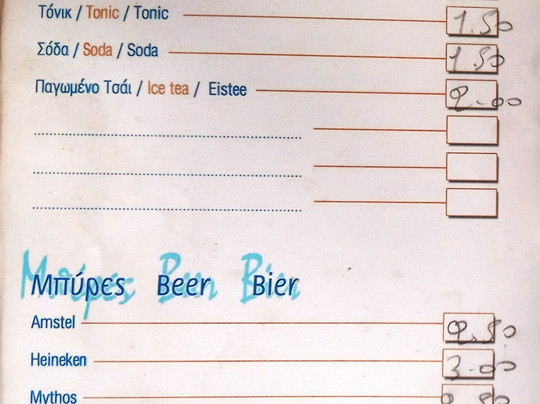 Τόνικ / Tonic / Tonic 1.50
Σόδα / Soda / Soda 1.50
Παγωμένο Τσάι / Ice tea / Eistee 2.00
Μπύρες Beer Bier
Amstel 2.50
Heineken 3.00
Mythos